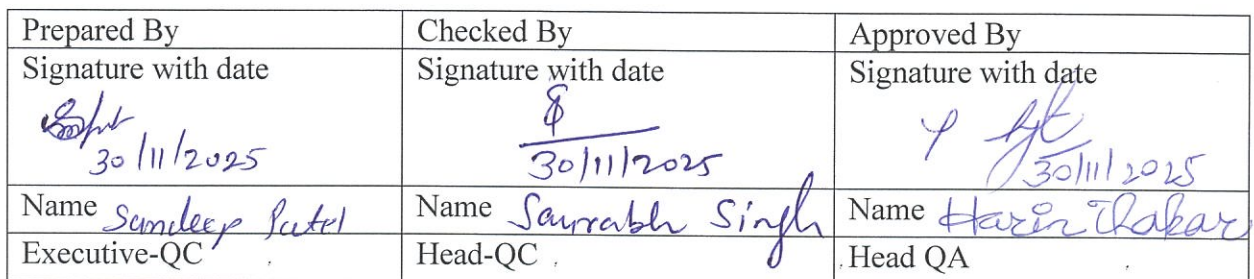 Prepared By Checked By Approved By
Signature with date Signature with date Signature with date
30/11/2025 30/11/2025 30/11/2025
Name Sandeep Patel Name Saurabh Singh Name Harin Thakar
Executive-QC Head-QC Head QA